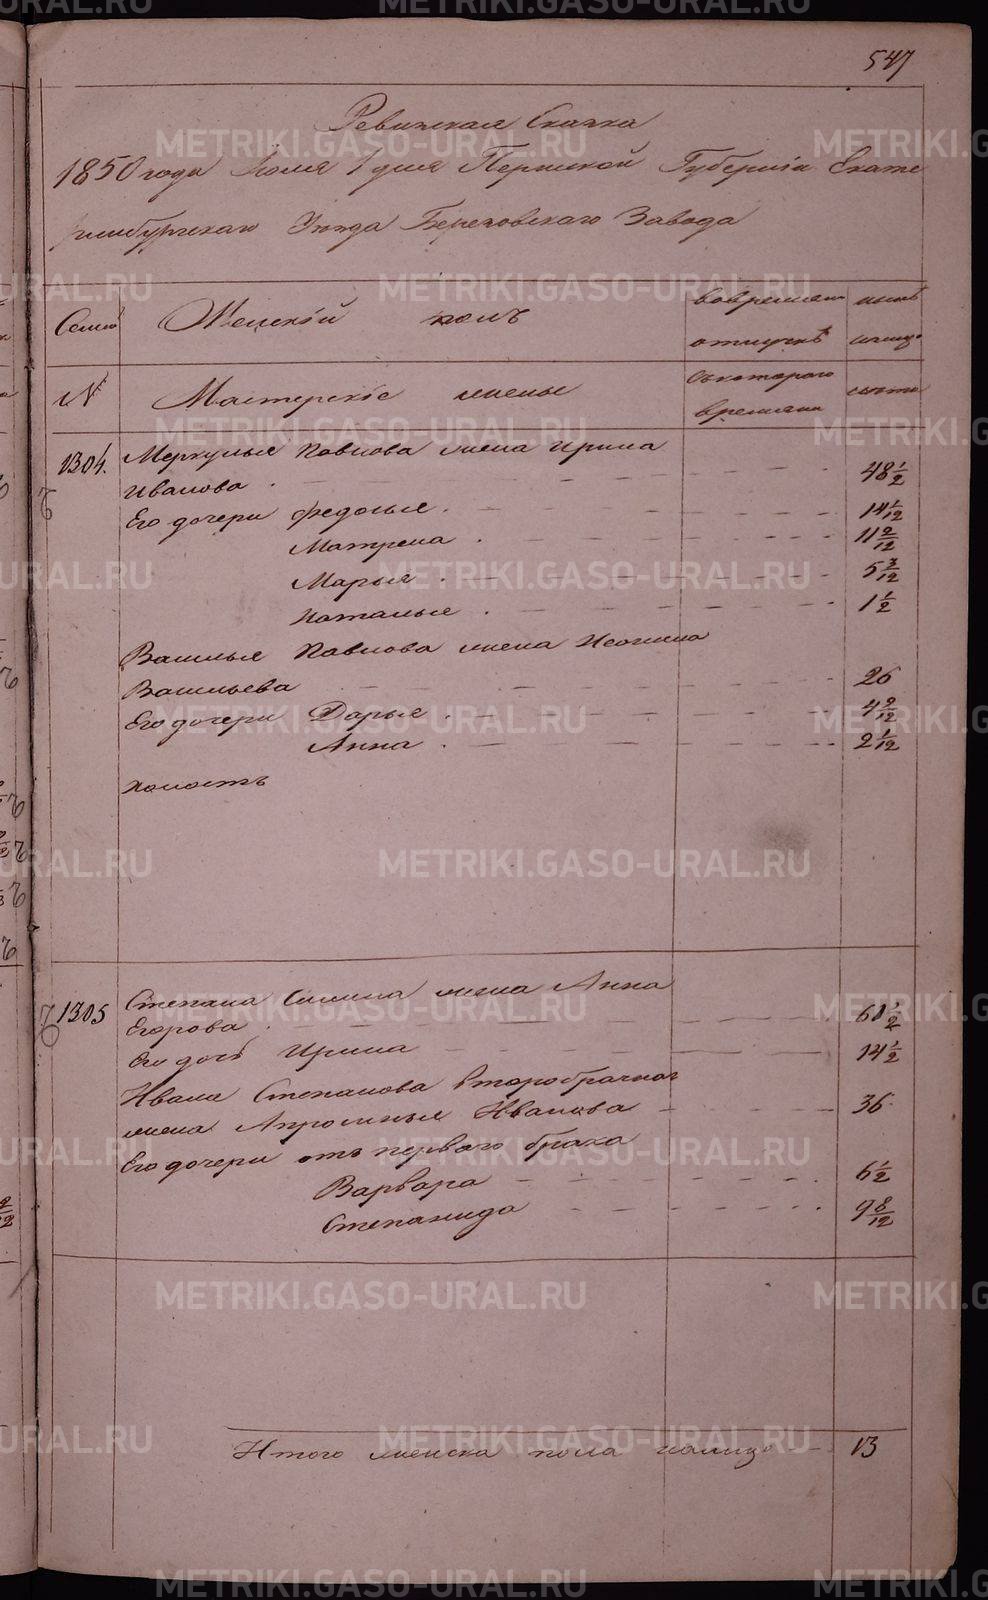 547
Ревижская Сказка
1850 года Июля 1 дня Пермской Губернiи Екате
ринбургскаго Уѣзда Березовскаго Завода
Семей Женскiй полъ вовременн нынѣ
отлучкѣ налицо
№ Мастерскiе жены Съкотораго
времени
1304. Меркулья Павлова жена Ирина
Иванова 48 1/2
Его дочери Федосья 14 1/12
Матрена 11 2/12
Марья 5 3/12
Наталья 1 1/2
Василья Павлова жена
Васильева 26
Его дочери Дарья 4 2/12
Анна 2 1/12
Холостъ
1305 Степана Силина жена Анна
Егорова 60 1/2
Его дочь Ирина 14 1/2
Ивана Степанова второбрачная
жена Апролинья Иванова 36
Его дочери отъ перваго брака
Варвара 6 1/2
Степанида 9 8/12
Итого женска пола налицо 13
METRIKI.GASO-URAL.RU